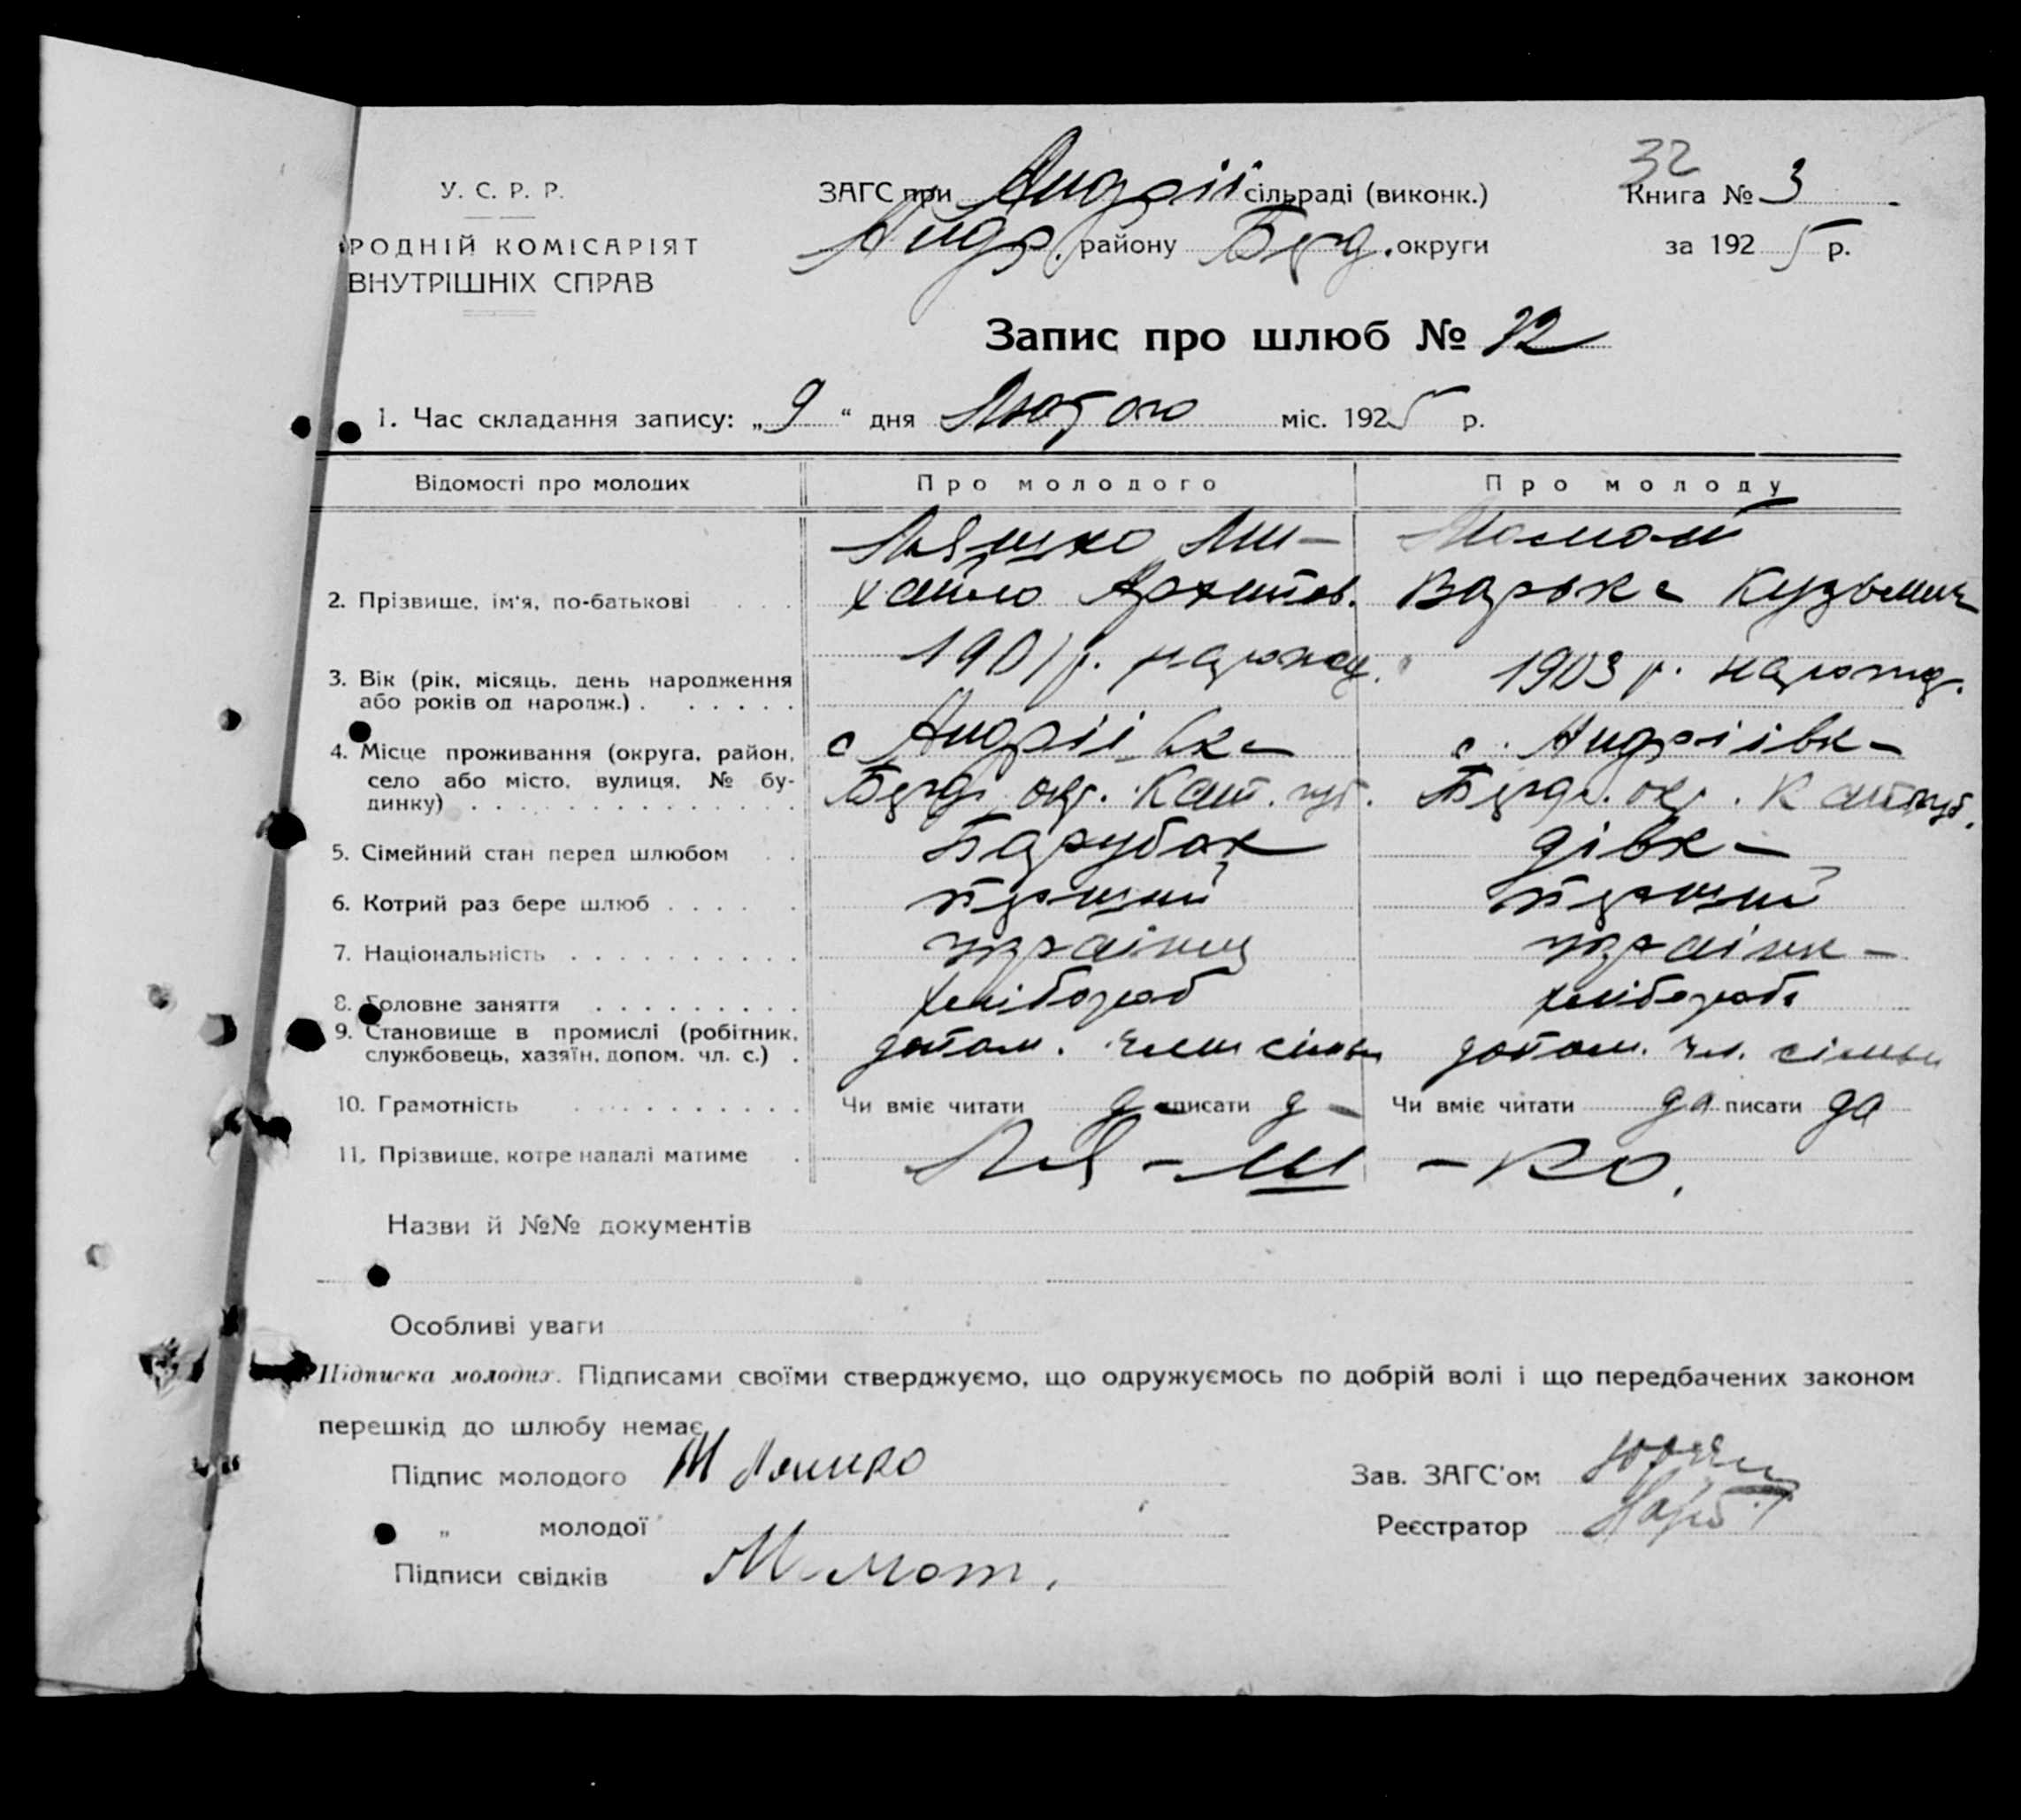 32
У. С. Р. Р.
РОДНІЙ КОМІСАРІЯТ
ВНУТРІШНІХ СПРАВ
ЗАГС при Андрії сільраді (виконк.)
Андр. району Берд. округи
Книга № 3
за 1925 р.
Запис про шлюб № 32
1. Час складання запису: „9“ дня Лютого міс. 1925 р.
Відомості про молодих Про молодого Про молоду
2. Прізвище, ім'я, по-батькові
Ляшко Ми-
хайло Архипов.
Мамот
Варька Кузьмин
3. Вік (рік, місяць, день народження
або років од народж.)
1901 р. нарожд.
1903 р. нарожд.
4. Місце проживання (округа, район,
село або місто, вулиця, № бу-
динку)
с Андріівка
Берд. окр. Кат. губ.
с. Андріівка
Берд. окр. Кат губ.
5. Сімейний стан перед шлюбом Барубок дівка
6. Котрий раз бере шлюб перший перший
7. Національність українец українка
8. Головне заняття хлібороб хлібороб
9. Становище в промислі (робітник,
службовець, хазяїн, допом. чл. с.)
допом. член сімьи допом. чл. сімьи
10. Грамотність Чи вміє читати да писати да Чи вміє читати да писати да
11. Прізвище, котре надалі матиме Ля - ш - ко.
Назви й №№ документів
Особливі уваги
Підписка молодих. Підписами своїми стверджуємо, що одружуємось по добрій волі і що передбачених законом
перешкід до шлюбу немає
Підпис молодого М Ляшко
„ молодої
Підписи свідків Мамот.
Зав. ЗАГС'ом
Реєстратор